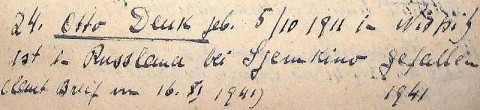 24. Otto Denk geb. 5/10 1911 in
Ist in Russland bei Sjemkino gefallen
(laut Brief vom 16. XI 1941) 1941